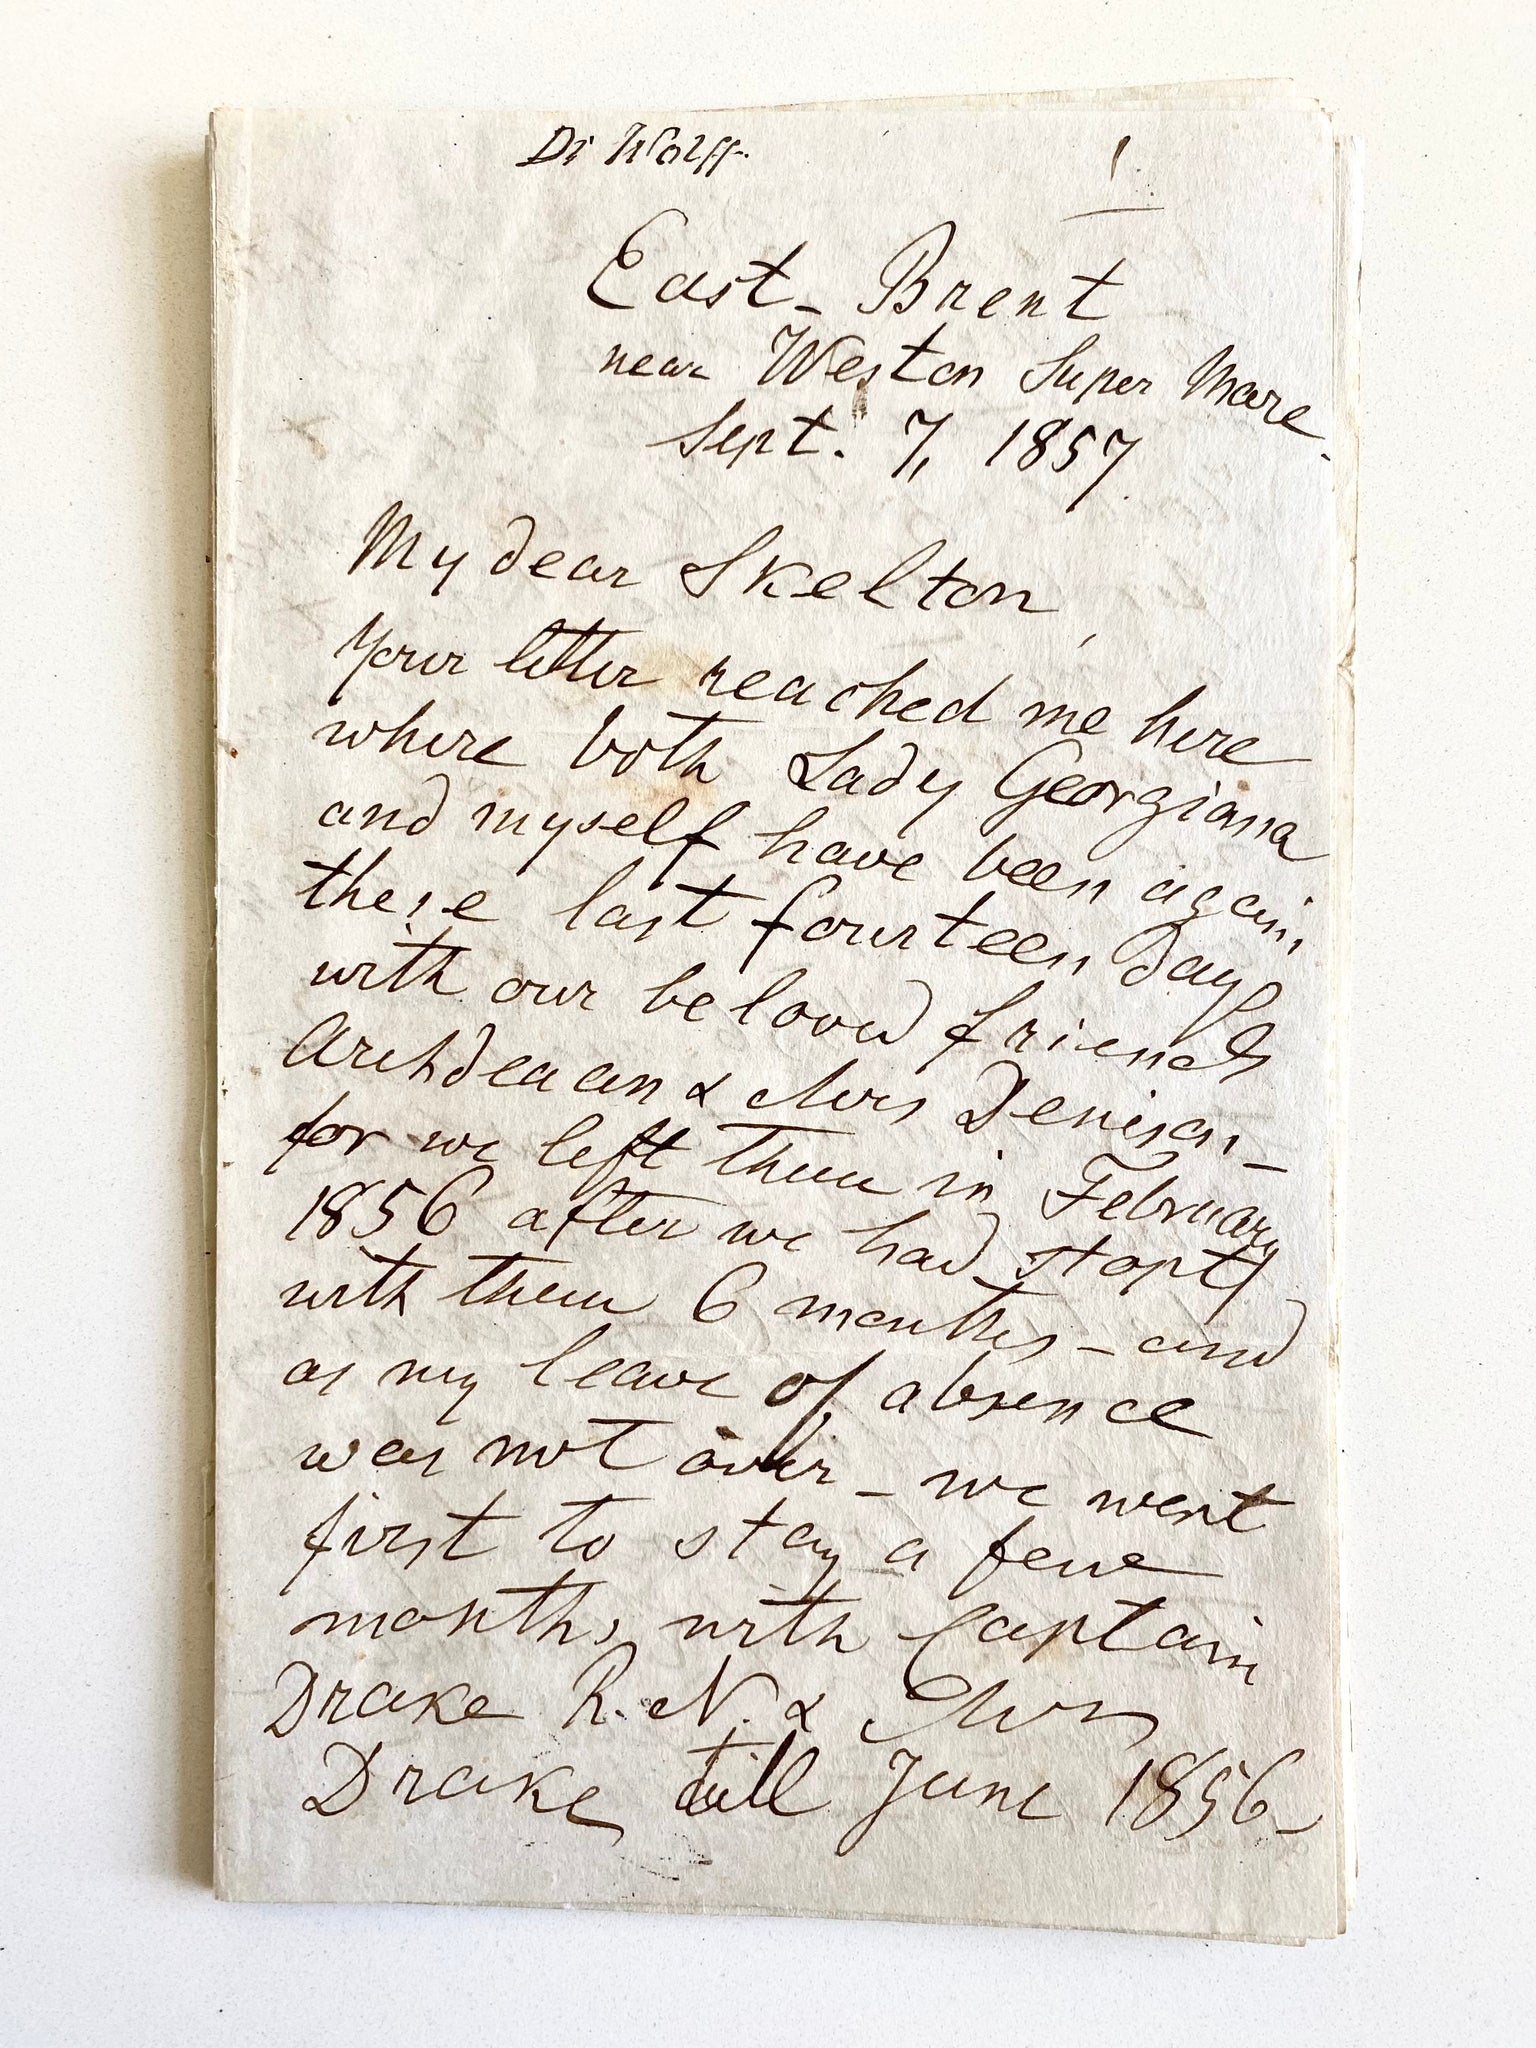 Dr Wolff.
1
East - Brent
near Weston Super Mare.
Sept. 7, 1857.
My dear Skelton,
Your letter reached me here
where both Lady Georgiana
and myself have been again
these last fourteen days
with our beloved friends
Archdeacon & Mrs Denison -
for we left them in February
1856 after we had stopt
with them 6 months - and
as my leave of absence
was not over - we went
first to stay a few
months with Captain
Drake R. N. & Mrs
Drake till June 1856 -